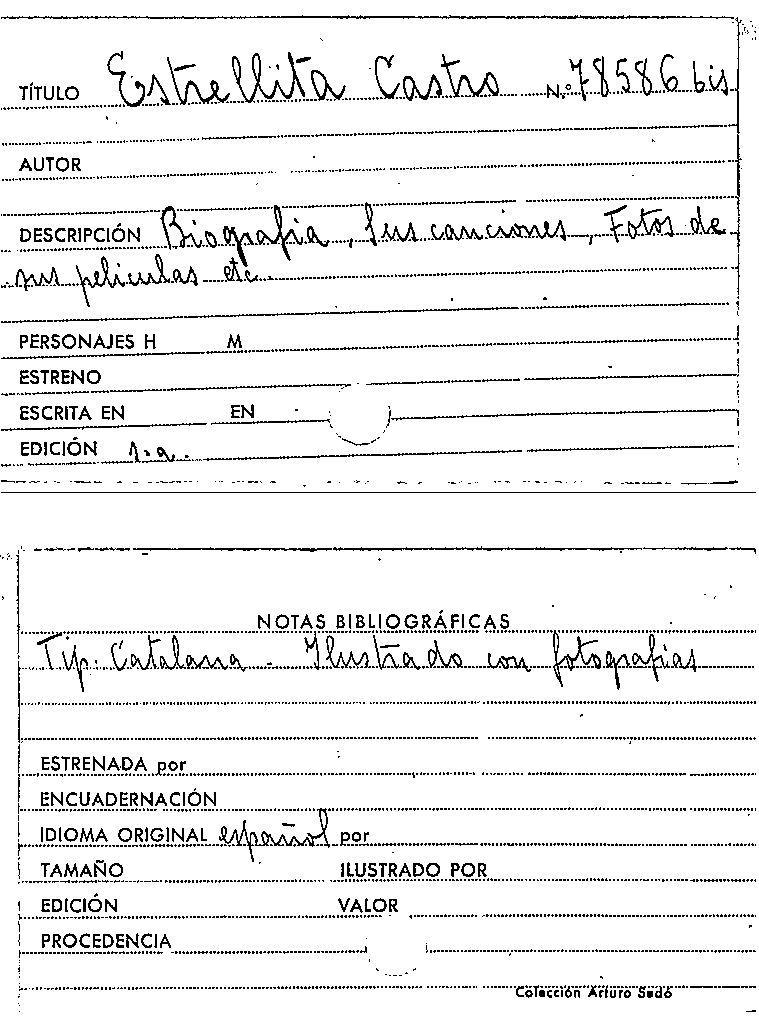 TÍTULO Estrellita Castro N.º 78586 bis
AUTOR
DESCRIPCIÓN Biografia, Sus canciones, Fotos de
sus peliculas etc.
PERSONAJES H M
ESTRENO
ESCRITA EN EN
EDICIÓN s.a.
NOTAS BIBLIOGRÁFICAS
Tip. Catalana - Ilustrado con fotografias
ESTRENADA por
ENCUADERNACIÓN
IDIOMA ORIGINAL español por
TAMAÑO ILUSTRADO POR
EDICIÓN VALOR
PROCEDENCIA
Colección Arturo Sedó